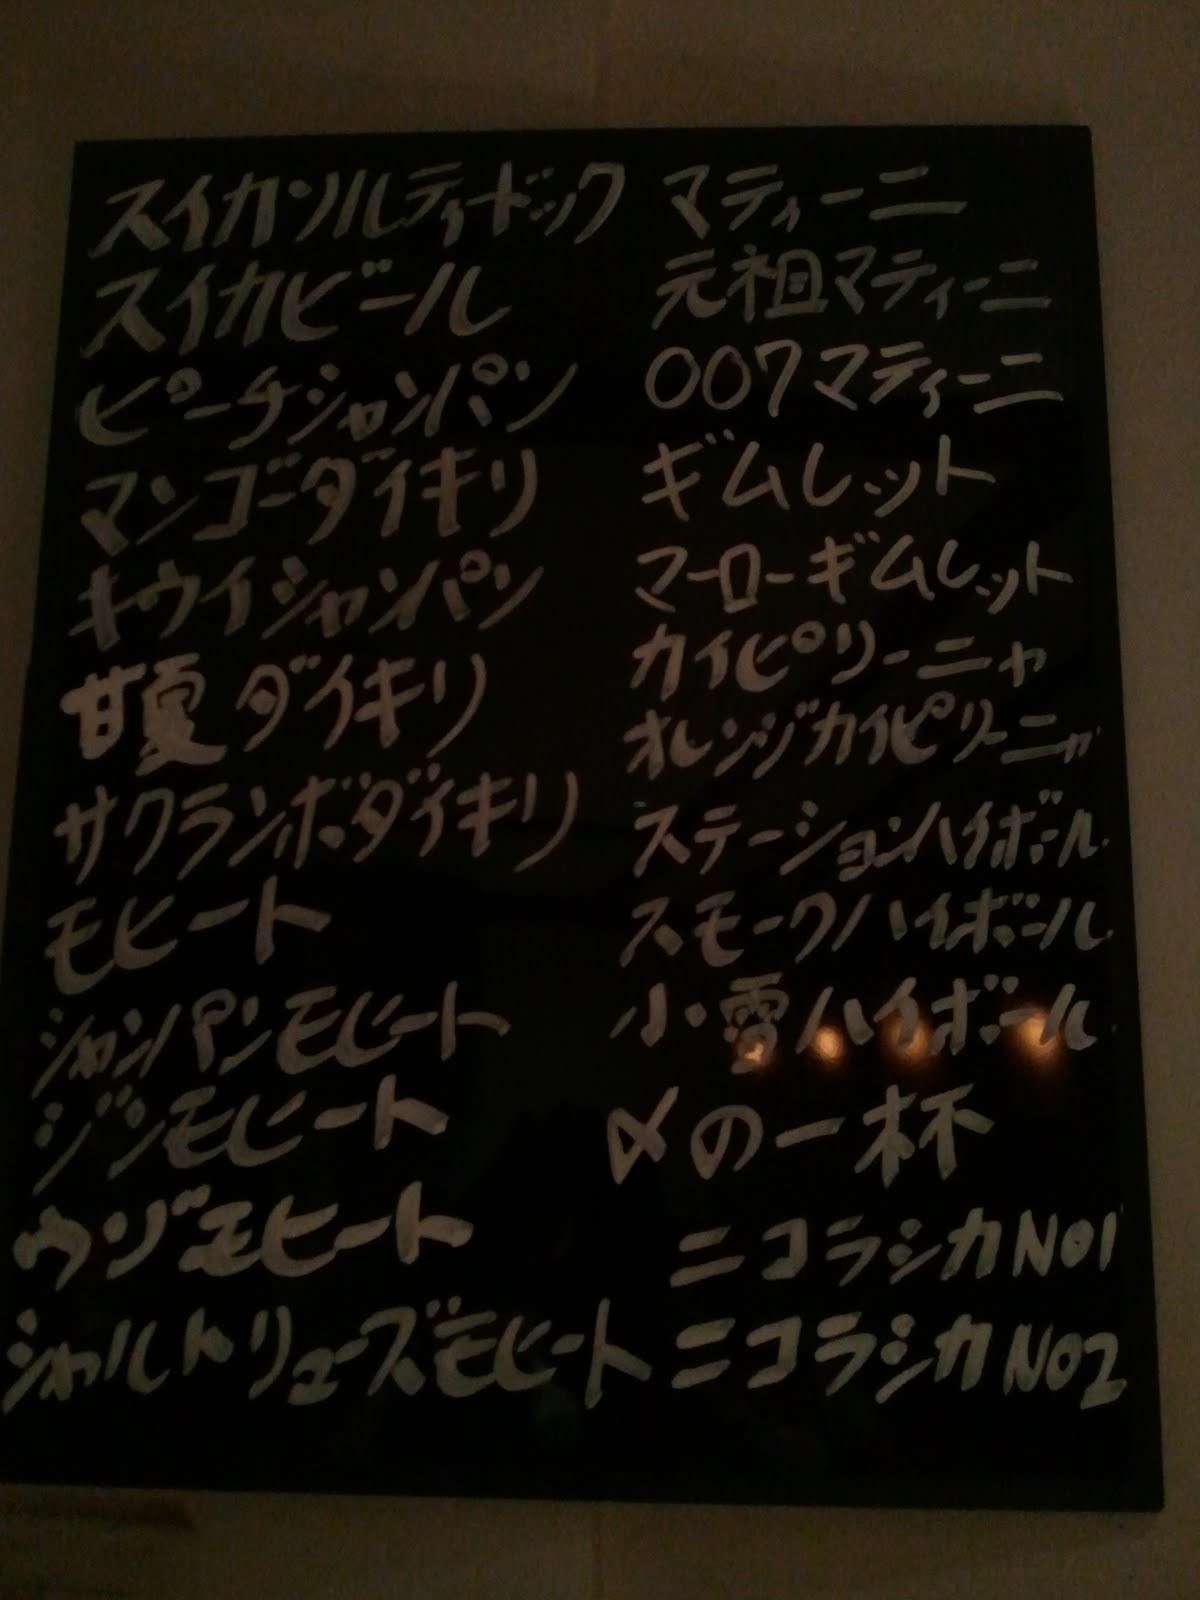 スイカソルティドック
スイカビール
ピーチシャンパン
マンゴーダイキリ
キウイシャンパン
甘夏ダイキリ
サクランボダイキリ
モヒート
シャンパンモヒート
ジンモヒート
ウゾモヒート
シャルトリューズモヒート
マティーニ
元祖マティーニ
007マティーニ
ギムレット
マーローギムレット
カイピリーニャ
オレンジカイピリーニャ
ステーションハイボール
スモークハイボール
小雪ハイボール
〆の一杯
ニコラシカNO1
ニコラシカNO2